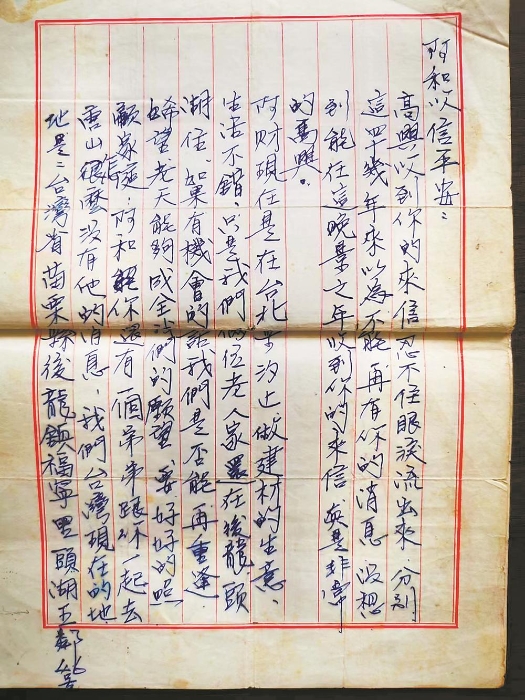 阿和以信平安：
高興收到你的來信忍不住眼淚流出來 分別
這四十幾年來以為不能再有你的消息 沒想
到能在這晚景之年收到你的來信 真是非常
的高興。
阿財現在是在台北市汐止做建材的生意、
生活不錯、只是我們伍老人家還在後龍頭
湖住、如果有機會的話我們是否能再重逢
希望老天能夠成全我們的願望 要好好的照
顧家庭：阿和 你還有一個弟弟跟你一起去
唐山 怎麼沒有他的消息、我們台灣現在的地
地是：台灣省苗栗縣後龍鎮福寧里頭湖五鄰46号